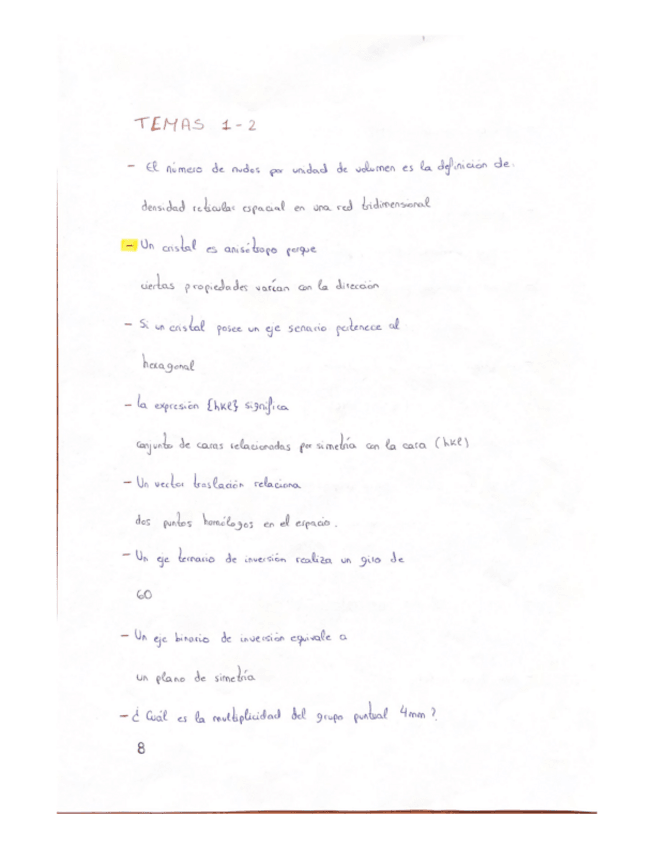 TEMAS 1-2
- El número de nudos por unidad de volumen es la definición de.
densidad reticular espacial en una red tridimensional
- Un cristal es anisótropo porque
ciertas propiedades varían con la dirección
- Si un cristal posee un eje senario pertenece al
hexagonal
- la expresión {hkl} significa
conjunto de caras relacionadas por simetría con la cara (hkl)
- Un vector traslación relaciona
dos puntos homólogos en el espacio.
- Un eje ternario de inversión realiza un giro de
60
- Un eje binario de inversión equivale a
un plano de simetría
- ¿Cuál es la multiplicidad del grupo puntual 4mm?
8